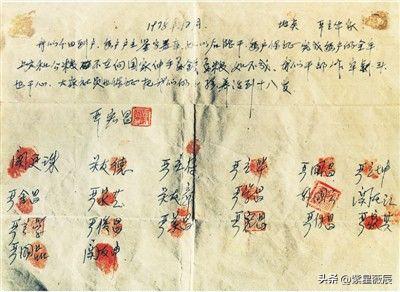 1978年12月 地点 严立华家
我们分田到户，每户户主签字盖章，如以后能干，每户保证完成每户的全年
上交和公粮。不在向国家伸手要钱要粮。如不成，我们干部作牢刹头
也干心，大家社员也保证把我们的小孩养活到十八岁
严宏昌
关廷珠 关友德 严立符 严立华 严国昌 严立坤
严金昌 严家芝 关友章 严学昌 韩国云 关友江
严立学 严俊昌 严美昌 严宏昌 严付昌 严家其
严国品 关友申
头条 @紫星薇辰